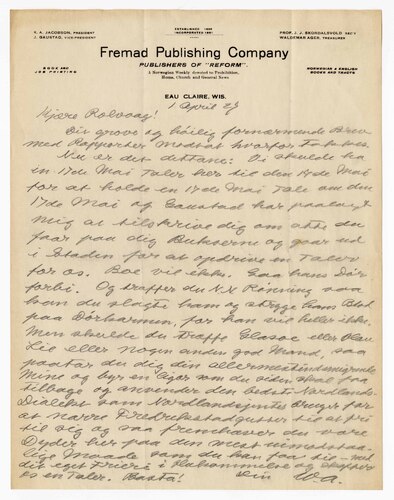 ESTABLISHED 1890
INCORPORATED 1901
T. A. JACOBSON, PRESIDENT
J. GAUSTAD, VICE-PRESIDENT
PROF. J. J. SKORDALSVOLD, SEC'Y
WALDEMAR AGER, TREASURER
Fremad Publishing Company
PUBLISHERS OF "REFORM"
BOOK AND
JOB PRINTING
A Norwegian Weekly devoted to Prohibition,
Home, Church and General News
NORWEGIAN & ENGLISH
BOOKS AND TRACTS
EAU CLAIRE, WIS.
1 April 27
Kjære Rolvaag!
Dit grove og höilig fornærmende Brev
med Rapporter modtat hvorfor Takkes.
Nu er det dettane: Vi skulde ha
en 17de Mai Taler her til den 18de Mai
for at holde en 17de Mai Tale om den
17de Mai og Gaustad har paalagt
mig at tilskrive dig om atte du
faar paa dig Bukserne og gaar ud
i Staden for at opdrive en Taler
for os. Boe vil ikke. Gaa hans Dör
forbi. Og træffer du N.N. Rönning saa
kan du slagte ham og stryge hans Blod
paa Dörkarmen, for han vil heller ikke.
Men skulde du træffe Glasoe eller Olav
Lie eller nogen anden god Mand, saa
paatar du dig den allermest indsmigrende
Mine og byr en Cigar som du siden skal faa
tilbage og anvender den bedste Nordlands-
Dialekt som Nordlandsjenter bruger for
at narre Fredrikstadgutter til at fri
til sig og saa fremhæver du vore
Dyder her paa den mest
lige Maade som du kan faa til - med
dit eget Frieri i Ihukommelse og skaffer
os en Taler. Basta!
Din
WA.